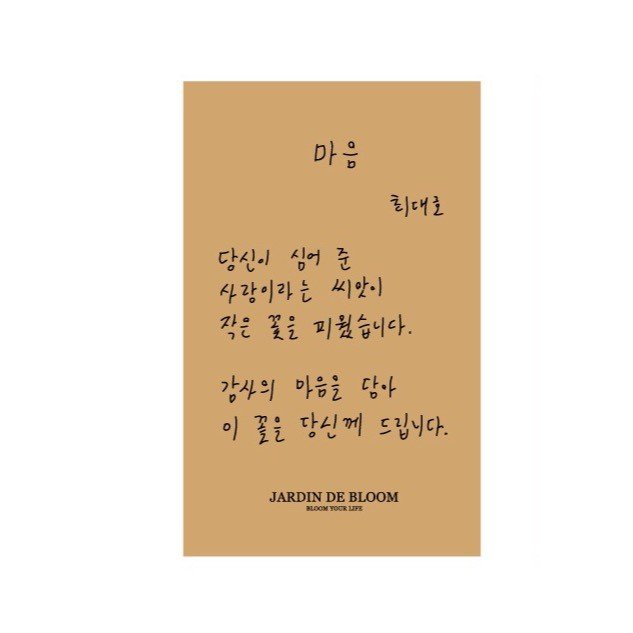 마음
최대호
당신이 심어 준
사랑이라는 씨앗이
작은 꽃을 피웠습니다.
감사의 마음을 담아
이 꽃을 당신께 드립니다.
JARDIN DE BLOOM
BLOOM YOUR LIFE